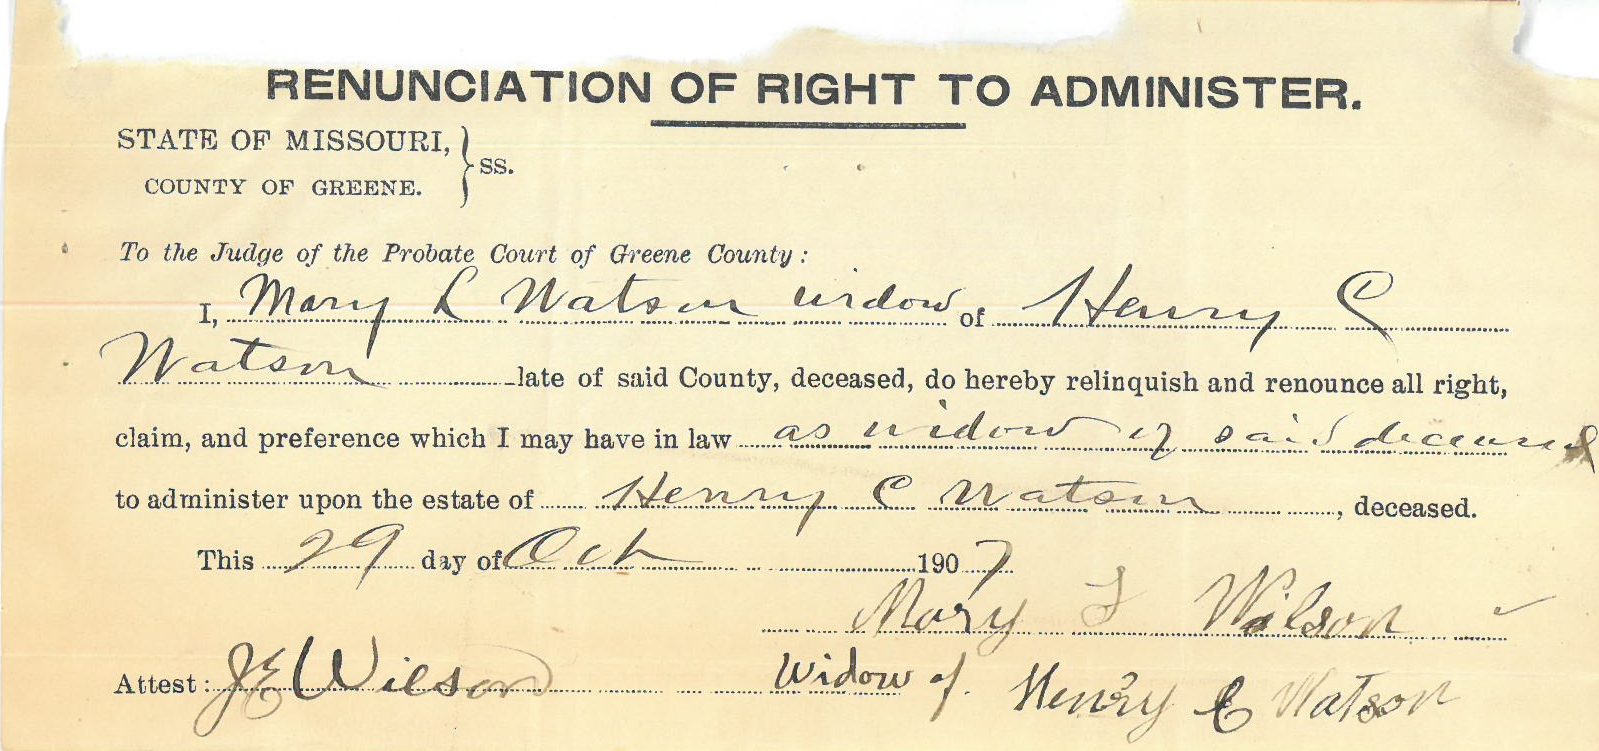 RENUNCIATION OF RIGHT TO ADMINISTER.
STATE OF MISSOURI,
COUNTY OF GREENE. } SS.
To the Judge of the Probate Court of Greene County:
I, Mary L Watson widow of Henry C
Watson late of said County, deceased, do hereby relinquish and renounce all right,
claim, and preference which I may have in law as widow of said deceased
to administer upon the estate of Henry C Watson, deceased.
This 29 day of Oct 1907
Mary L Wilson
Attest: J E Wilson Widow of Henry C Watson